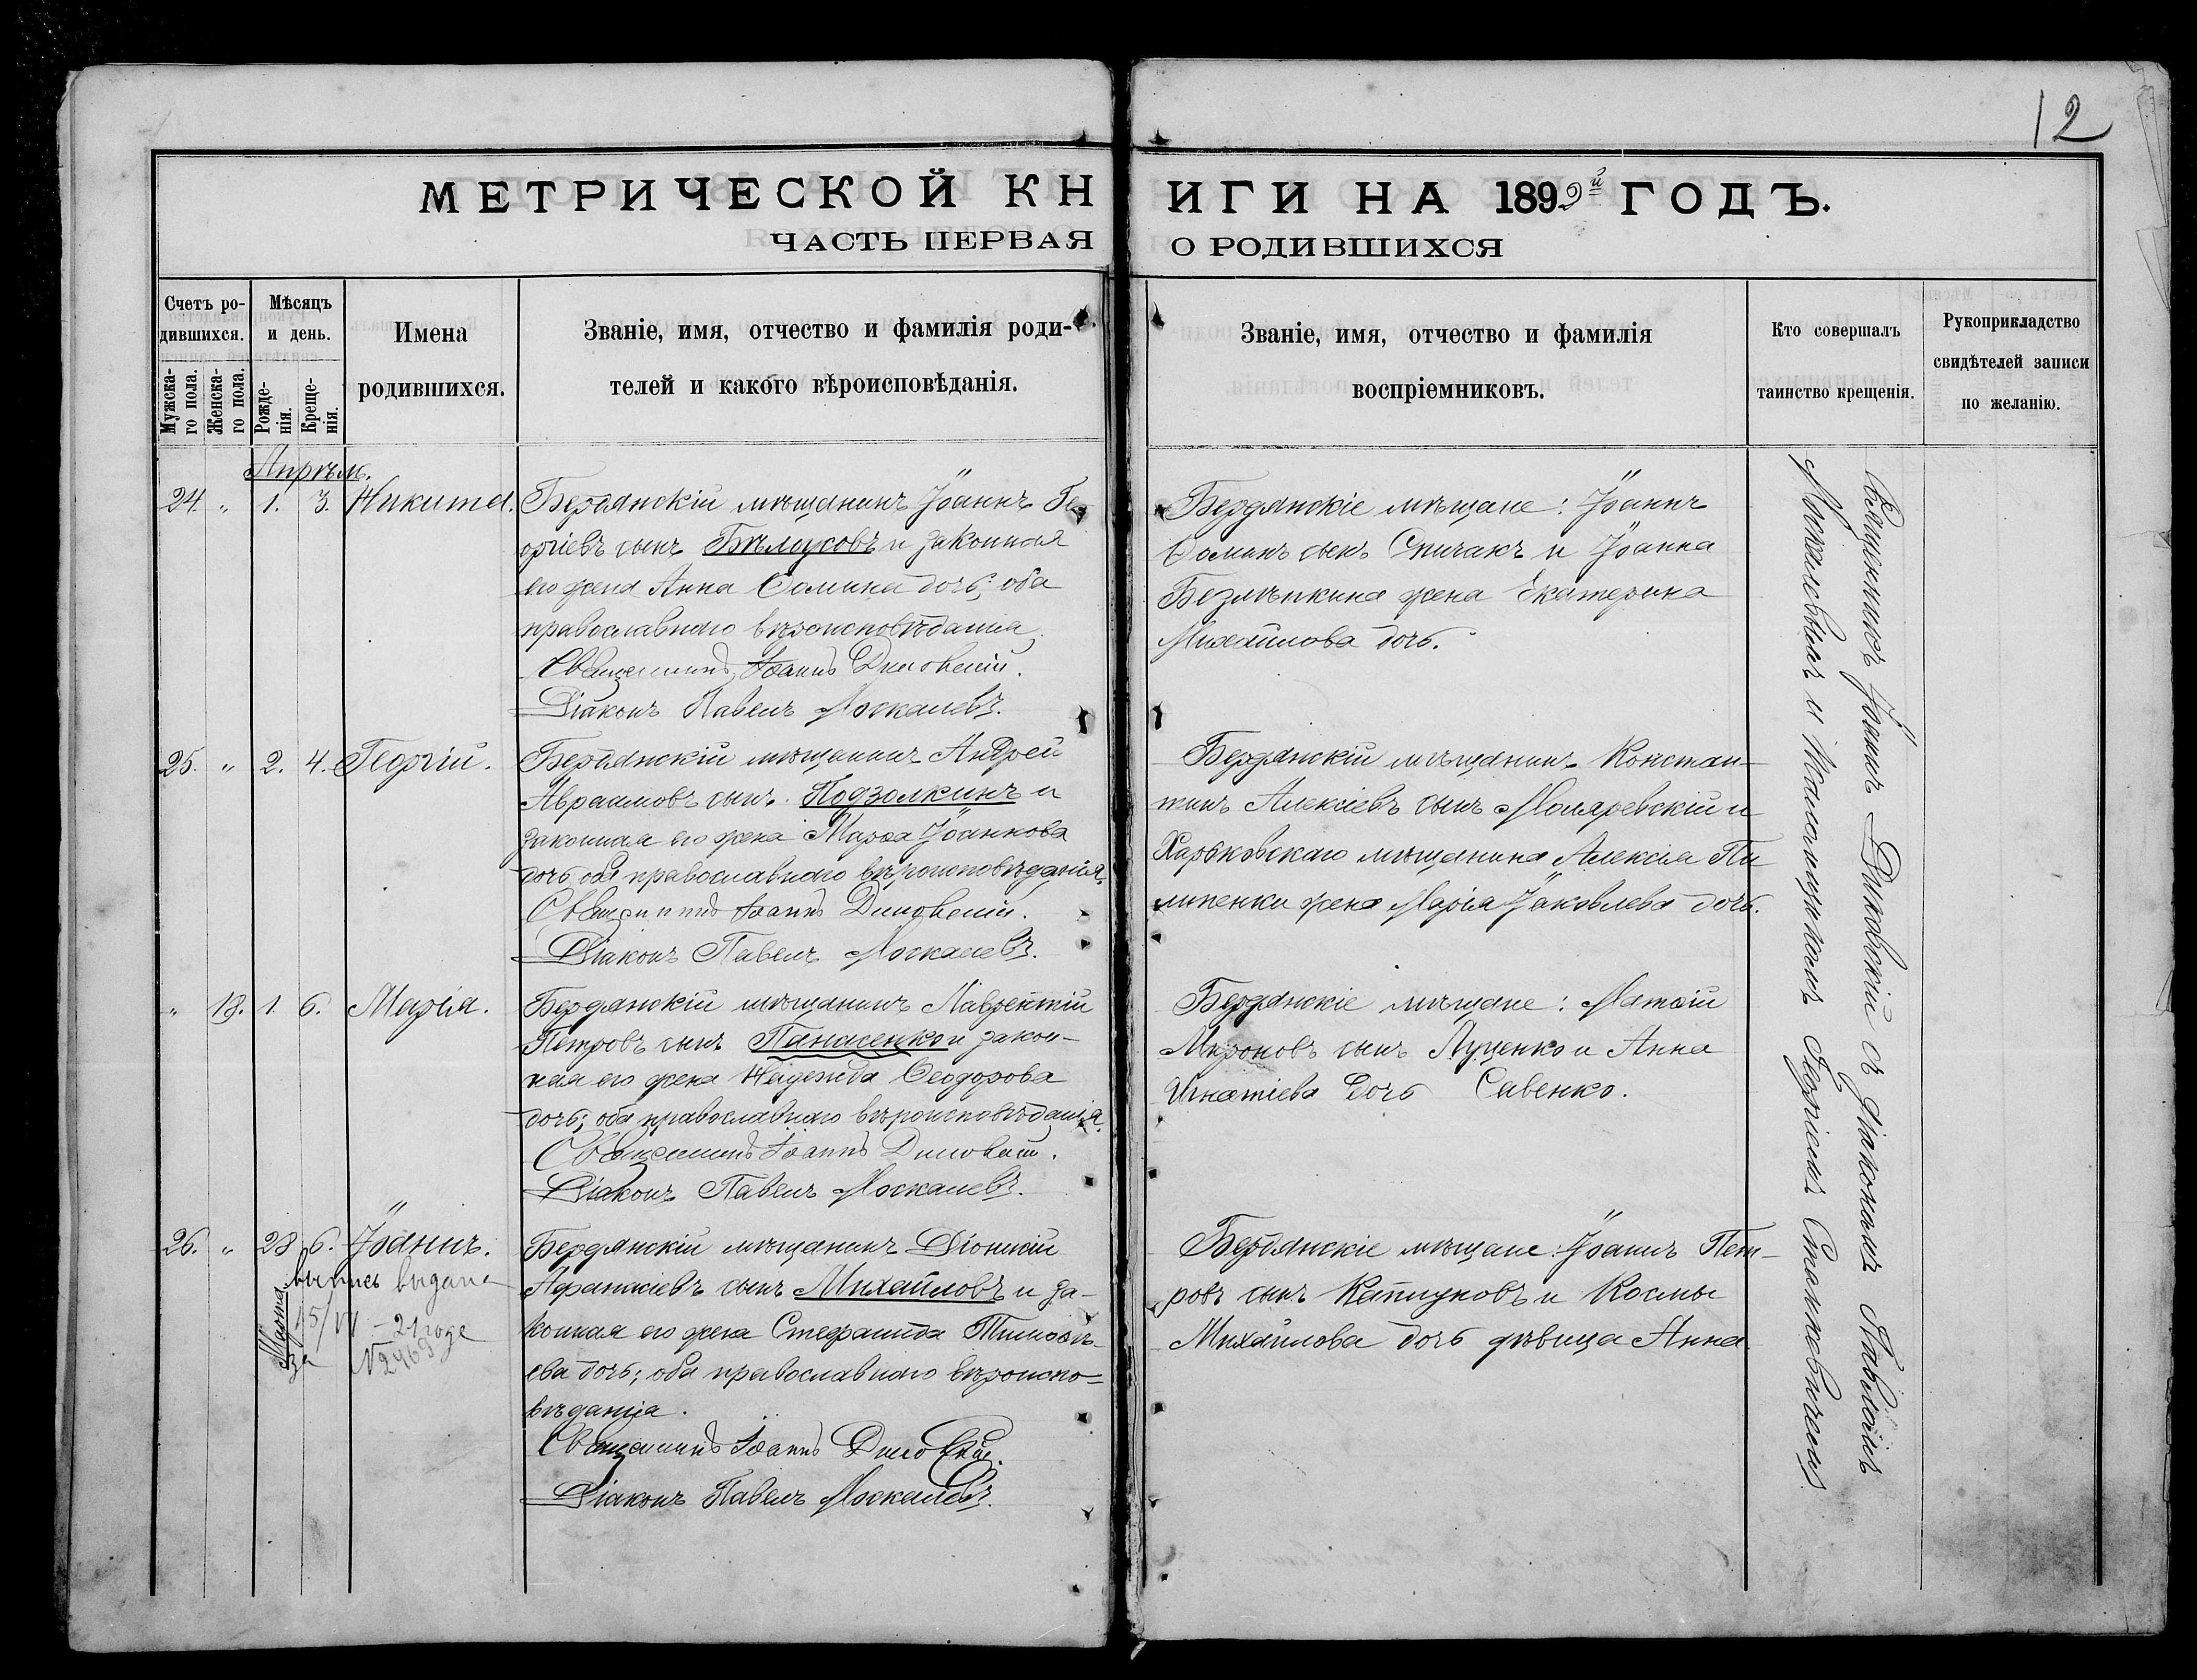 12
МЕТРИЧЕСКОЙ КНИГИ НА 1899й ГОДЪ.
ЧАСТЬ ПЕРВАЯ О РОДИВШИХСЯ
Счетъ ро-
дившихся.
Мужска-
го пола.
Женска-
го пола.
Мѣсяцъ
и день.
Рожде-
нія.
Креще-
нія.
Имена
родившихся.
Званіе, имя, отчество и фамилія роди-
телей и какого вѣроисповѣданія.
Званіе, имя, отчество и фамилія
воспріемниковъ.
Кто совершалъ
таинство крещенія.
Рукоприкладство
свидѣтелей записи
по желанію.
Апрѣль.
24. " 1. 3. Никита.
Бердянскій мѣщанинъ Іоаннъ Ге-
оргіевъ сынъ Бѣлоусовъ и законная
его жена Анна Ѳомина дочь; оба
православнаго вѣроисповѣданія.
Священникъ Іоаннъ
Діаконъ Павелъ Москалевъ.
Бердянскіе мѣщане: Іоаннъ
Ѳоминъ сынъ Спичакъ и Іоанна
жена Екатерина
Михайлова дочь.
25. " 2. 4. Георгій.
Бердянскій мѣщанинъ Андрей
Авраамовъ сынъ Подзолкинъ и
законная его жена Марѳа Іоаннова
дочь оба православнаго вѣроисповѣданія.
Священникъ Іоаннъ
Діаконъ Павелъ Москалевъ.
Бердянскій мѣщанинъ Констан-
тинъ Алексіевъ сынъ Моляревскій и
Харьковскаго мѣщанина Алексія Пи
липенки жена Марія Іаковлева дочь.
" 18. 1. 6. Марія.
Бердянскій мѣщанинъ Лаврентій
Петровъ сынъ Панасенко и закон-
ная его жена Надежда Ѳеодорова
дочь; оба православнаго вѣроисповѣданія.
Священникъ Іоаннъ
Діаконъ Павелъ Москалевъ.
Бердянскіе мѣщане: Матѳій
Мироновъ сынъ Луценко и Анна
Игнатіева дочь Савенко.
26. " 28 6. Іоаннъ.
Марта
выпись выдана
15/VI - 21 годе
за №2469
Бердянскій мѣщанинъ Діонисій
Афанасіевъ сынъ Михайловъ и за-
конная его жена Стефанида Тимоѳѣ-
ева дочь; оба православнаго вѣроиспо-
вѣданія.
Священникъ Іоаннъ
Діаконъ Павелъ Москалевъ.
Бердянскіе мѣщане: Іоаннъ Пет-
ровъ сынъ и Космы
Михайлова дочь дѣвица Анна.
Священникъ Іоаннъ съ діакономъ Павломъ
Москалевымъ и псаломщикомъ Георгіемъ Станкевичемъ